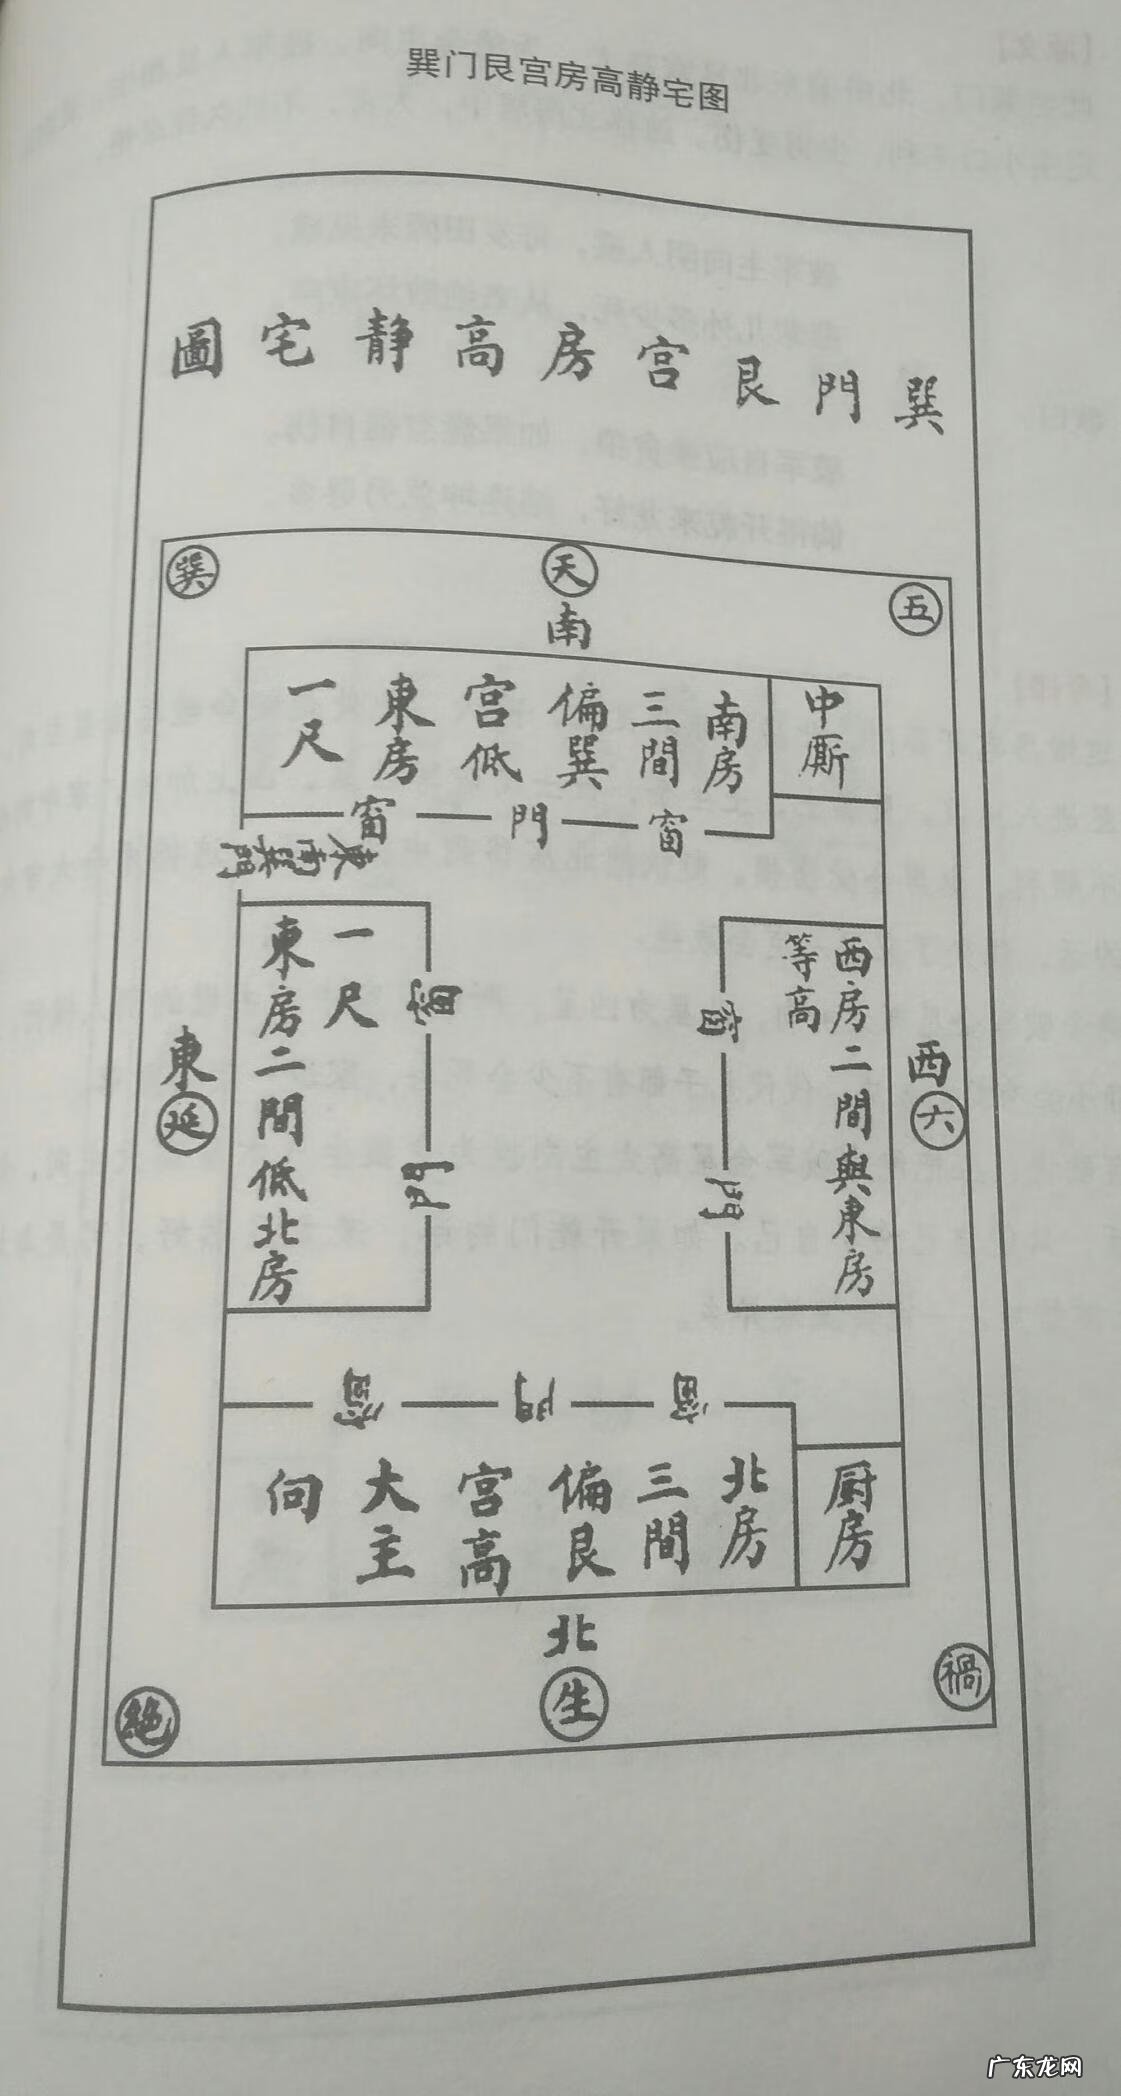 巽门艮宫房高静宅图
巽門艮宫房高静宅圖
巽
天
五
南
南房
三間
偏巽
宫低
東房
一尺
中厮
窗
門
窗
東南巽門
東房二間低北房
一尺
窗
門
西房二間與東房
等高
窗
門
東
延
西
六
窗
門
窗
北房
三間
偏艮
宫高
大主
向
厨房
北
生
絶
禍
广东龙网